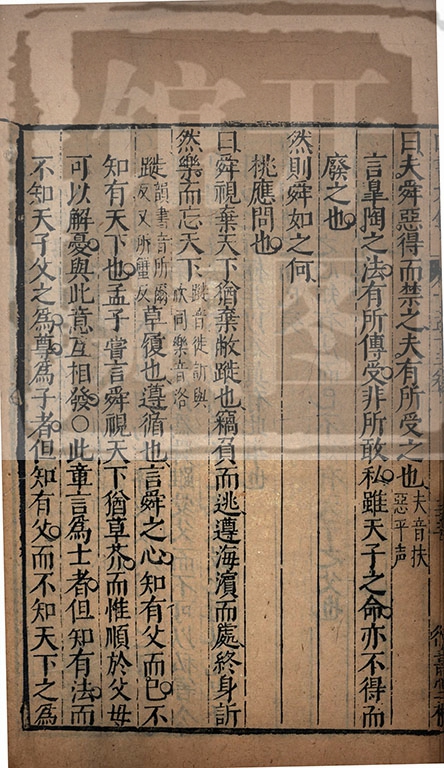 曰夫舜惡得而禁之夫有所受之也夫音扶惡平声
言臯陶之法有所傳受非所敢私雖天子之命亦不得而
廢之也
然則舜如之何
桃應問也
曰舜視棄天下猶棄敝蹝也竊負而逃遵海濱而處終身訢
然樂而忘天下蹝音徙訢與欣同樂音洛
蹝韻書音所爾反又所蟹反草履也遵循也言舜之心知有父而已不
知有天下也孟子嘗言舜視天下猶草芥而惟順於父母
可以解憂與此意互相發○此章言為士者但知有法而
不知天子父之為尊為子者但知有父而不知天下之為